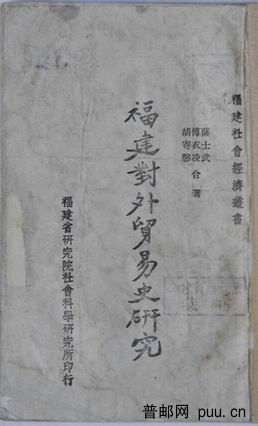 福建社會經濟叢書
薩士武
傅衣凌
胡寄馨
合著
福建對外貿易史研究
福建省研究院社會科學研究所印行
普邮网 puu.cn